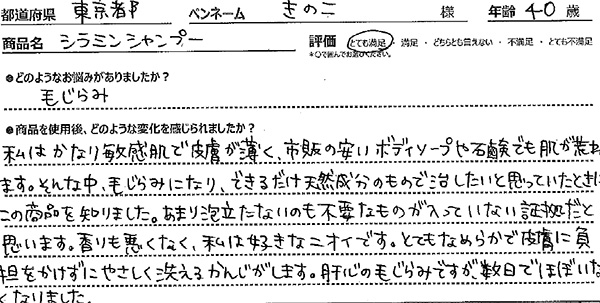 都道府県 東京都 ペンネーム きのこ 様 年齢 40 歳
商品名 シラミンシャンプー 評価 とても満足 ・ 満足 ・ どちらとも言えない ・ 不満足 ・ とても不満足
*○で囲んでお選びください。
●どのようなお悩みがありましたか?
毛じらみ
●商品を使用後、どのような変化を感じられましたか?
私はかなり敏感肌で皮膚が薄く、市販の安いボディソープや石鹸でも肌が荒れ
ます。そんな中、毛じらみになり、できるだけ天然成分のもので治したいと思っていたときに
この商品を知りました。あまり泡立たないのも不要なものが入っていない証拠だと
思います。香りも悪くなく、私は好きなニオイです。とてもなめらかで皮膚に負
担をかけずにやさしく洗えるかんじがします。肝心の毛じらみですが、数日でほぼいな
くなりました。